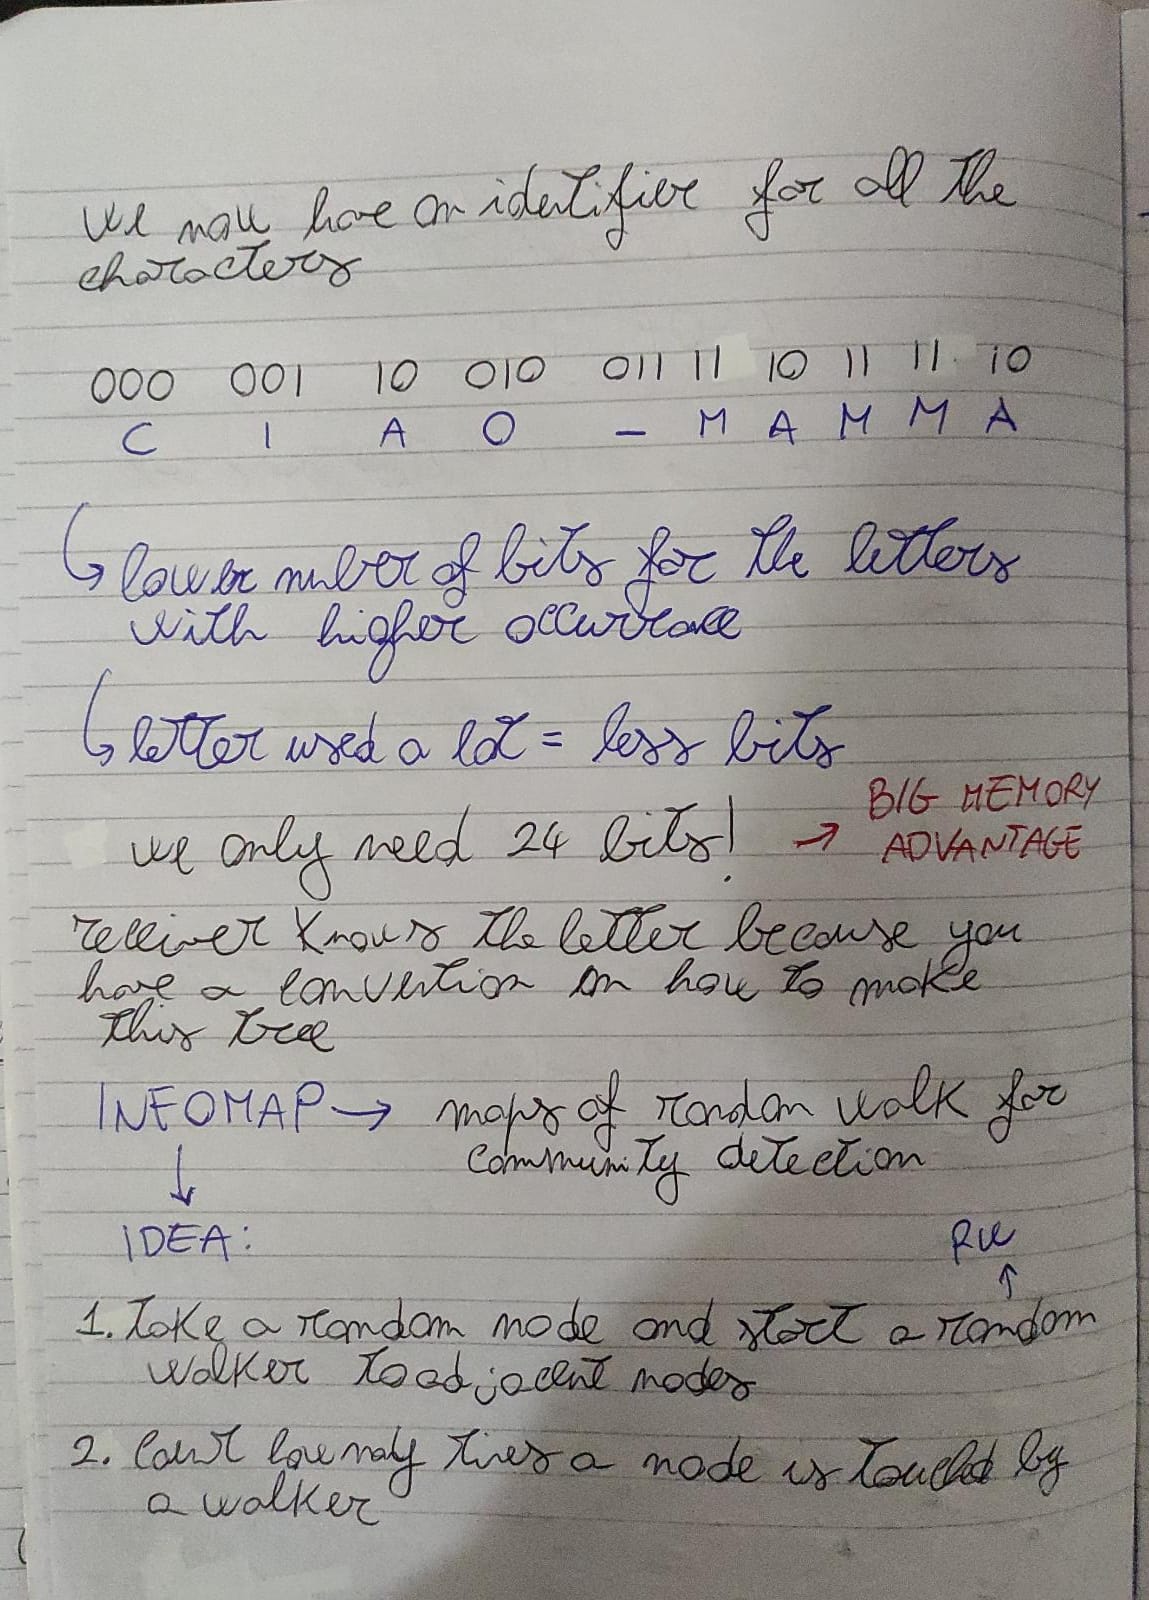 we now have an identifier for all the
characters
000 001 10 010 011 11 10 11 11 10
C I A O _ M A M M A
lower number of bits for the letters
with higher occurrence
letter used a lot = less bits
we only need 24 bits! → BIG MEMORY
ADVANTAGE
receiver knows the letter because you
have a convention on how to make
this tree
INFOMAP → maps of random walk for
community detection
IDEA:
RW
1. take a random node and start a random
walker to adjacent nodes
2. count how many times a node is touched by
a walker